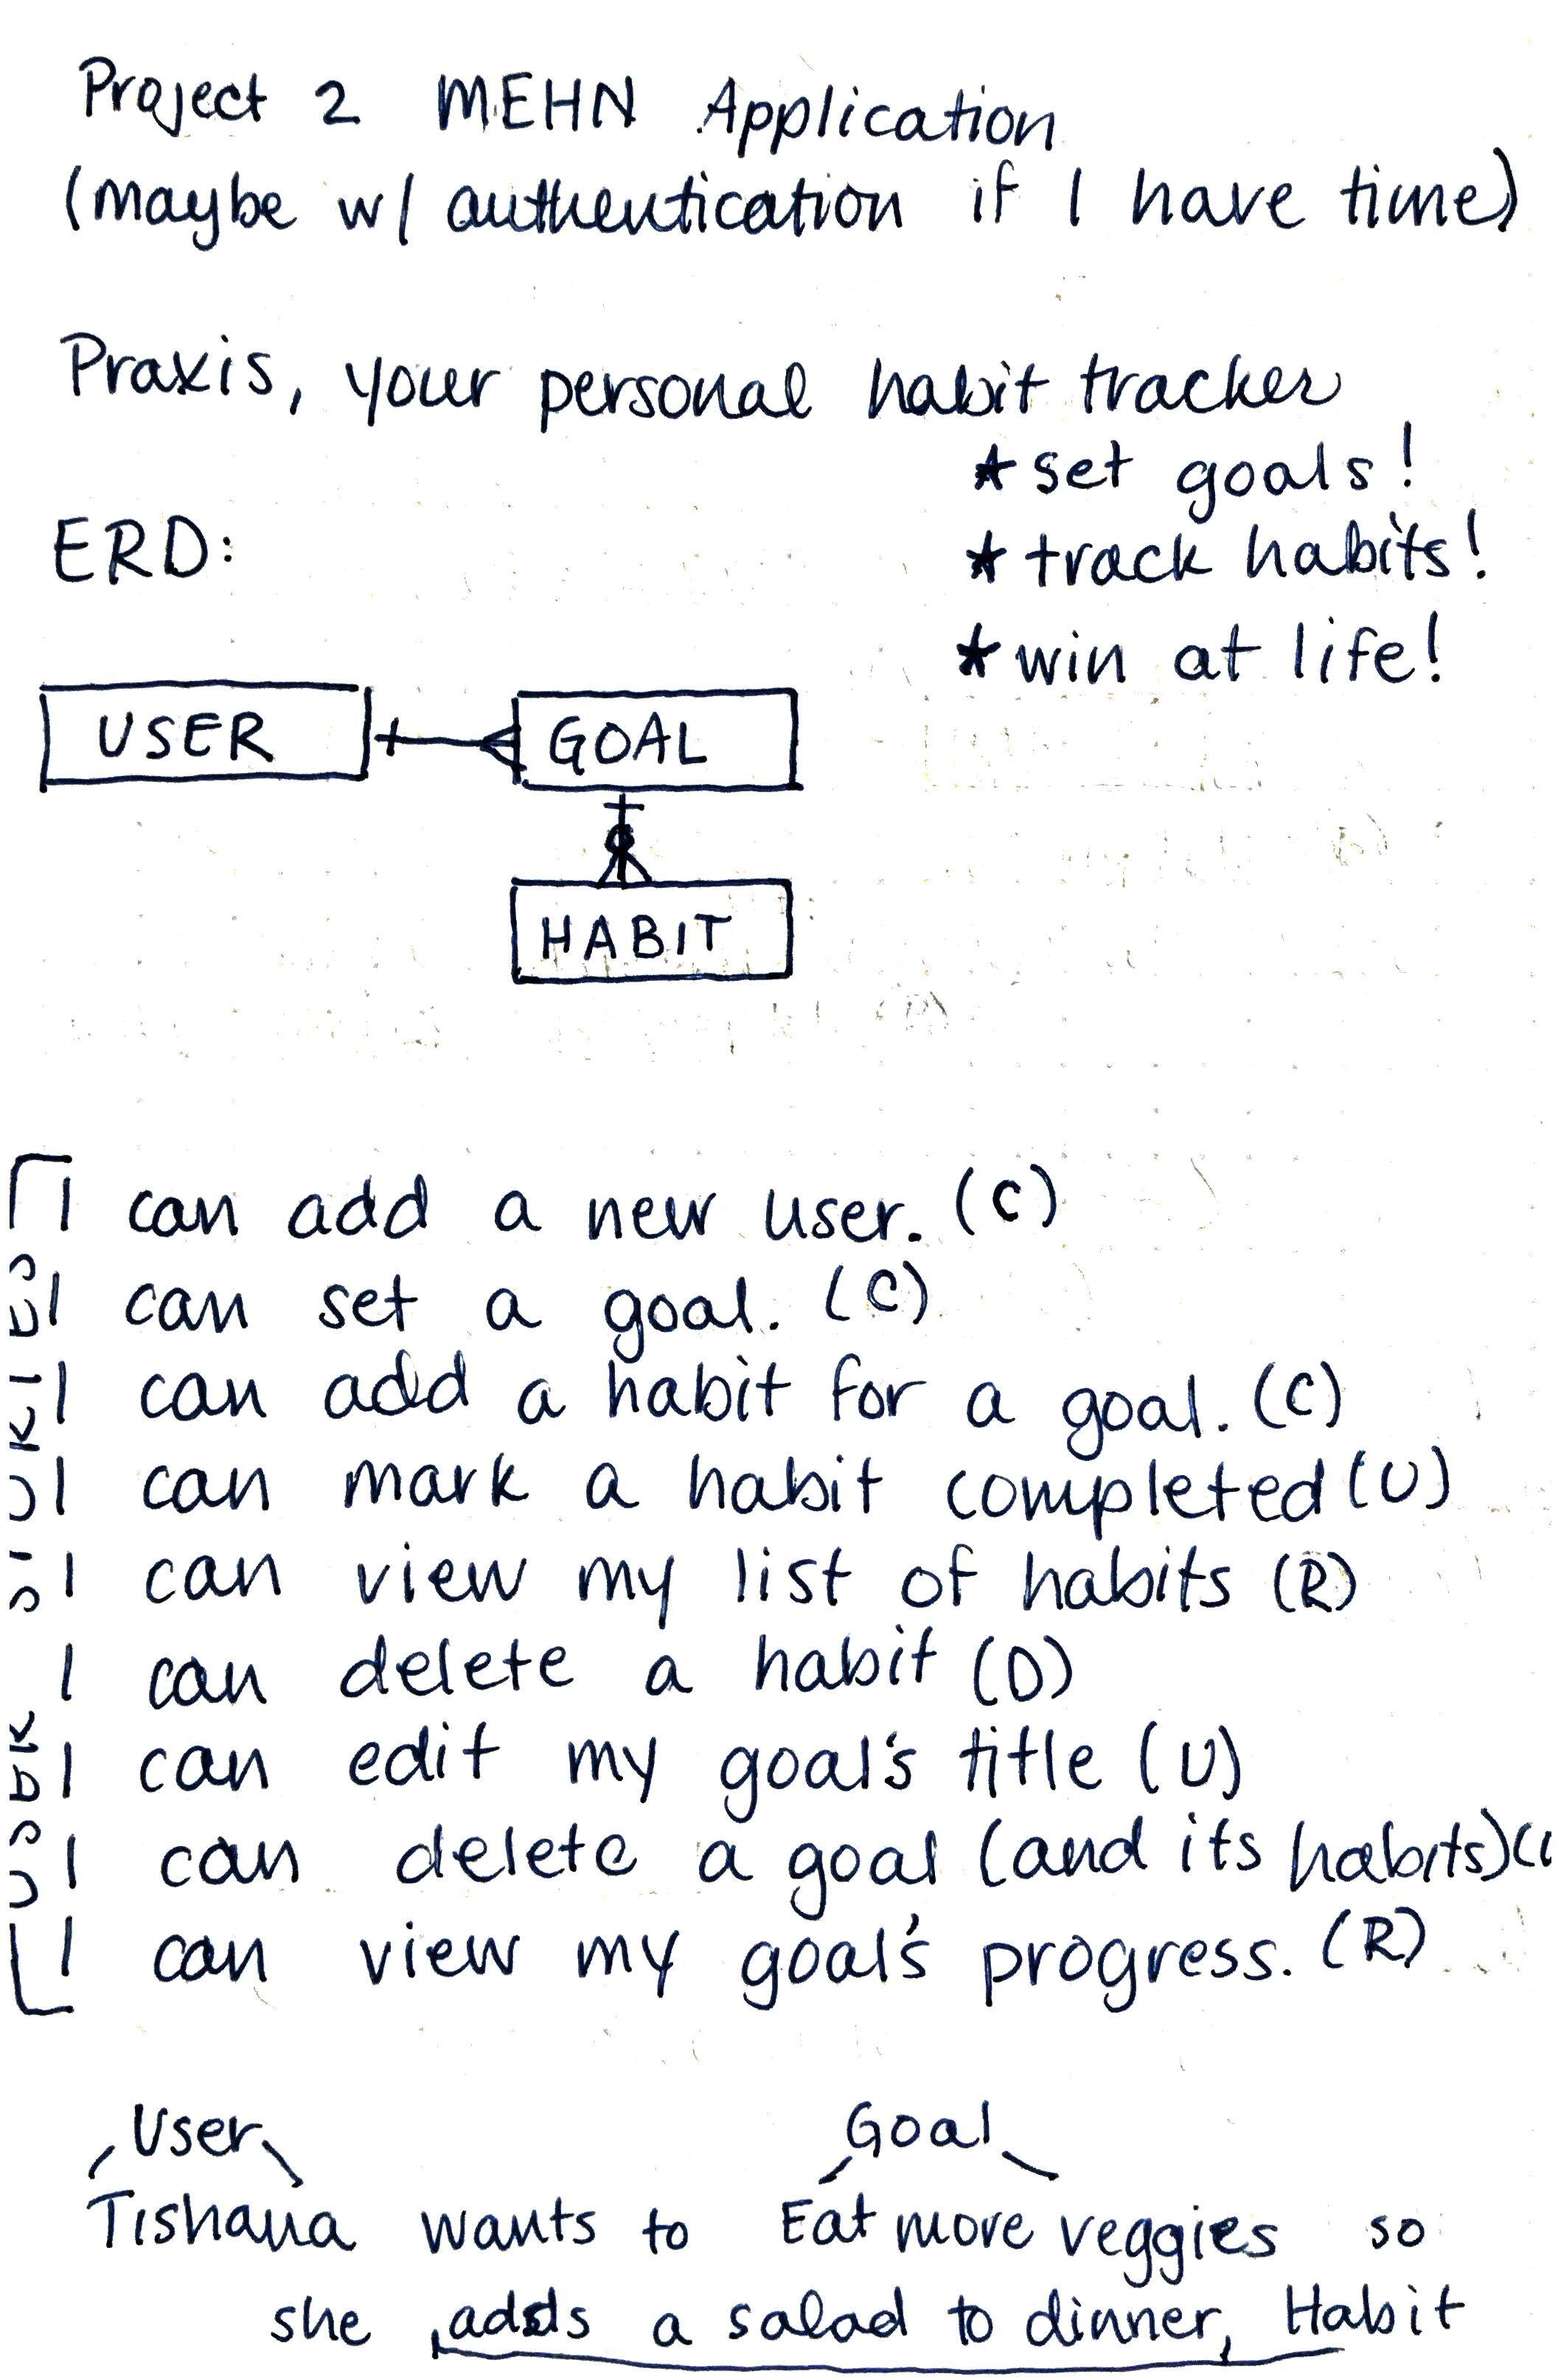 Project 2 MEHN Application
(maybe w/ authentication if I have time)
Praxis, your personal habit tracker
* set goals!
ERD:
* track habits!
* win at life!
USER
GOAL
HABIT
I can add a new user. (C)
I can set a goal. (C)
I can add a habit for a goal. (C)
I can mark a habit completed (U)
I can view my list of habits (R)
I can delete a habit (D)
I can edit my goal's title (U)
I can delete a goal (and its habits)
I can view my goal's progress. (R)
User
Goal
Tishana wants to Eat more veggies so
she adds a salad to dinner, Habit